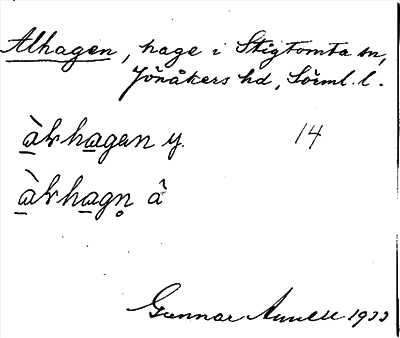 Alhagen, hage i Stigtomta sn,
Jönåkers hd, Sörml. l.
ɑ̱̀ɽhɑ̱gen y. 14
ɑ̱̀ɽhɑ̱gn̥ â
Gunnar 1933